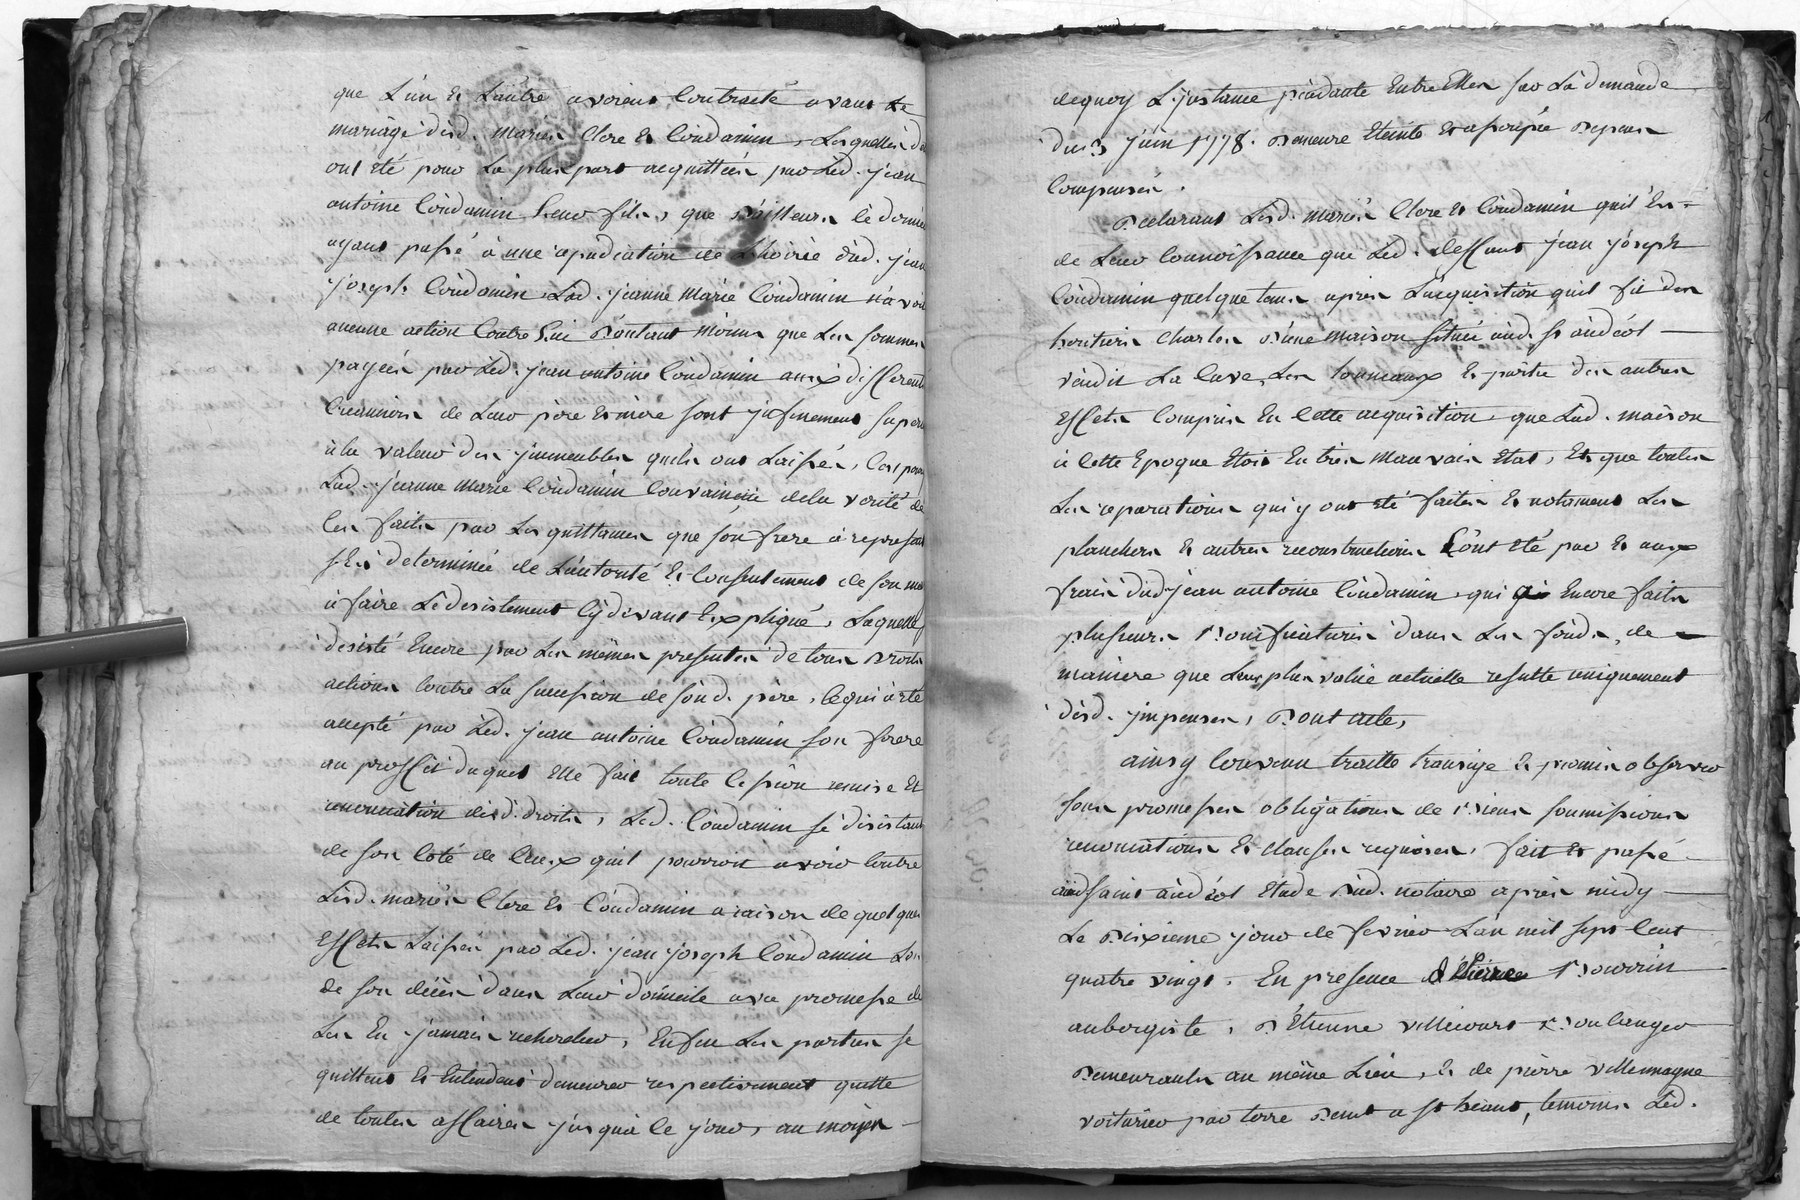 que L'un et L'autre avoient Contracté avant Le
mariage desd. mariés Clere et Coudamin, Lesquelles d
ont été pour La plus part acquittées par Led. jean
antoine Coudamin Leur fils, que D'ailleurs ce dernier
ayant passé à une repudiation de L'hoirie dud. jean
joseph Coudamin Lad. jeanne Marie Coudamin n'avoit
aucune action Contre Lui D'autant Moins que Les sommes
payées par Led. jean antoine Coudamin aux differents
Creanciers de Leur père et mère sont jnfiniment super
à la valeur des jmmeubles quils ont Laissés, C'est pour
Lad. jeanne Marie Coudamin Convaincüe dela verité de
Ces faits par Les quittances que son frere à represent
s'Est determinée de L'autorité et Consentement de son mari
à faire Le desistement Cy devant Expliqué, Laquelle
desisté Encore par Les mêmes presentes de tous Droits
actions Contre La succession de sond. père, Ce qui à été
accepté par Led. jean antoine Coudamin son frere
au proffit duquel Elle fait toute Cession remise Et
renonciation desd. droits, Led. Coudamin se desistant
de son Coté de Ceux quil pourroit avoir Contre
Lesd. mariés Clere et Coudamin a raison de quelques
Effets Laissés par Led. jean joseph Coudamin Lors
de son décès dans Leur domicile avec promesse de
Les En jamais rechercher, Enfin Les parties se
quittent et Entendent demeurer respectivement quitte
de toutes affaires jusqu'à Ce jour, au moyen
dequoy L'jnstance pendante Entre Elles sur La demande
du 3 juin 1778. Demeure Eteinte et assoupie Depens
Compensés.
Declarant Lesd. mariés Clere et Coudamin quil Est
de Leur Connoissance que Led. deffunt jean joseph
Coudamin quelque tems après L'acquisition quil fit des
heritiers Charles D'une maison située aud. st andéol
vendit La Cave, Les tonneaux et partie des autres
Effets Compris En Cette acquisition, que Lad. maison
à Cette Epoque Etoit En très Mauvais Etat, Et que toutes
Les reparations qui y ont été faites et notament Les
planchers et autres reconstructions L'ont été par et aux
frais dud jean antoine Coudamin, qui a Encore fait
plusieurs Bonifications dans Les fonds, de
maniere que Leur plus value actuelle resulte uniquement
desd. jmpenses, Dont acte,
ainsy Convenu traitté transigé et promis observer
sous promesses obligations de Biens soumissions
renonciations et clauses requises, fait et passé
aud saint andéol Etude Dud. notaire après midy
Le Dixieme jour de fevrier L'an mil sept Cent
quatre vingt. En presence d'Etienne Bourrin
aubergiste, D'Etienne villecourt Boulanger
Demeurants au même Lieu, et de pierre villemagne
voiturier par terre Demt a st heant, temoins Led.